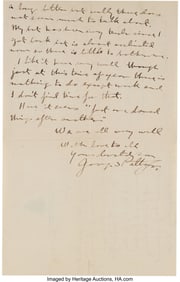 a long letter but really there does
not seem much to talk about.
My hat has been very bad since I
got back but is about
now so there is little to bother me.
I like it here very well though
just at this time of year there is
nothing to do except work and
I don't find time for that.
Here it seems "just one damned
thing after another"
We are all very well
With love to all
Your
George S Patton Jr.
Image by Heritage Auctions, HA.com